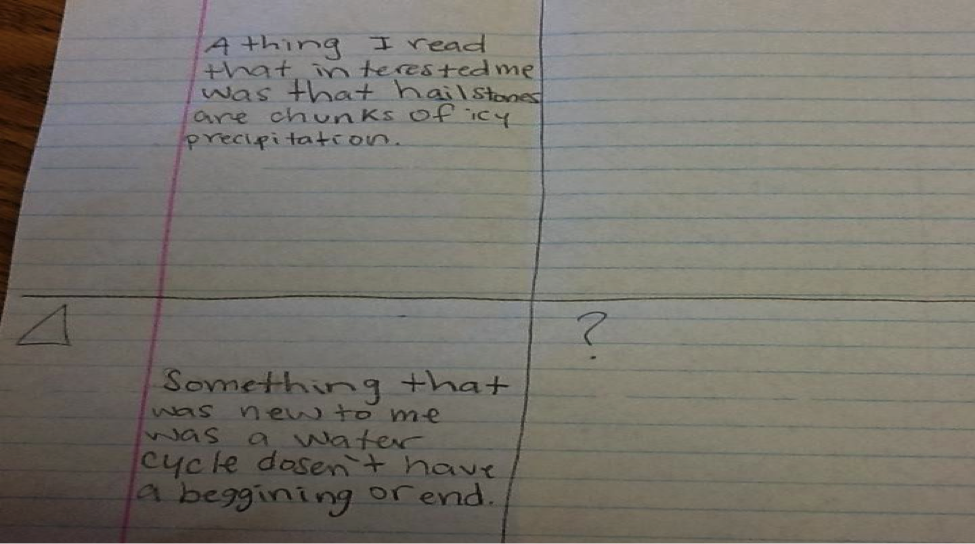 A thing I read
that interested me
was that hailstones
are chunks of icy
precipitation.
?
Something that
was new to me
was a water
cycle dosen't have
a beggining or end.